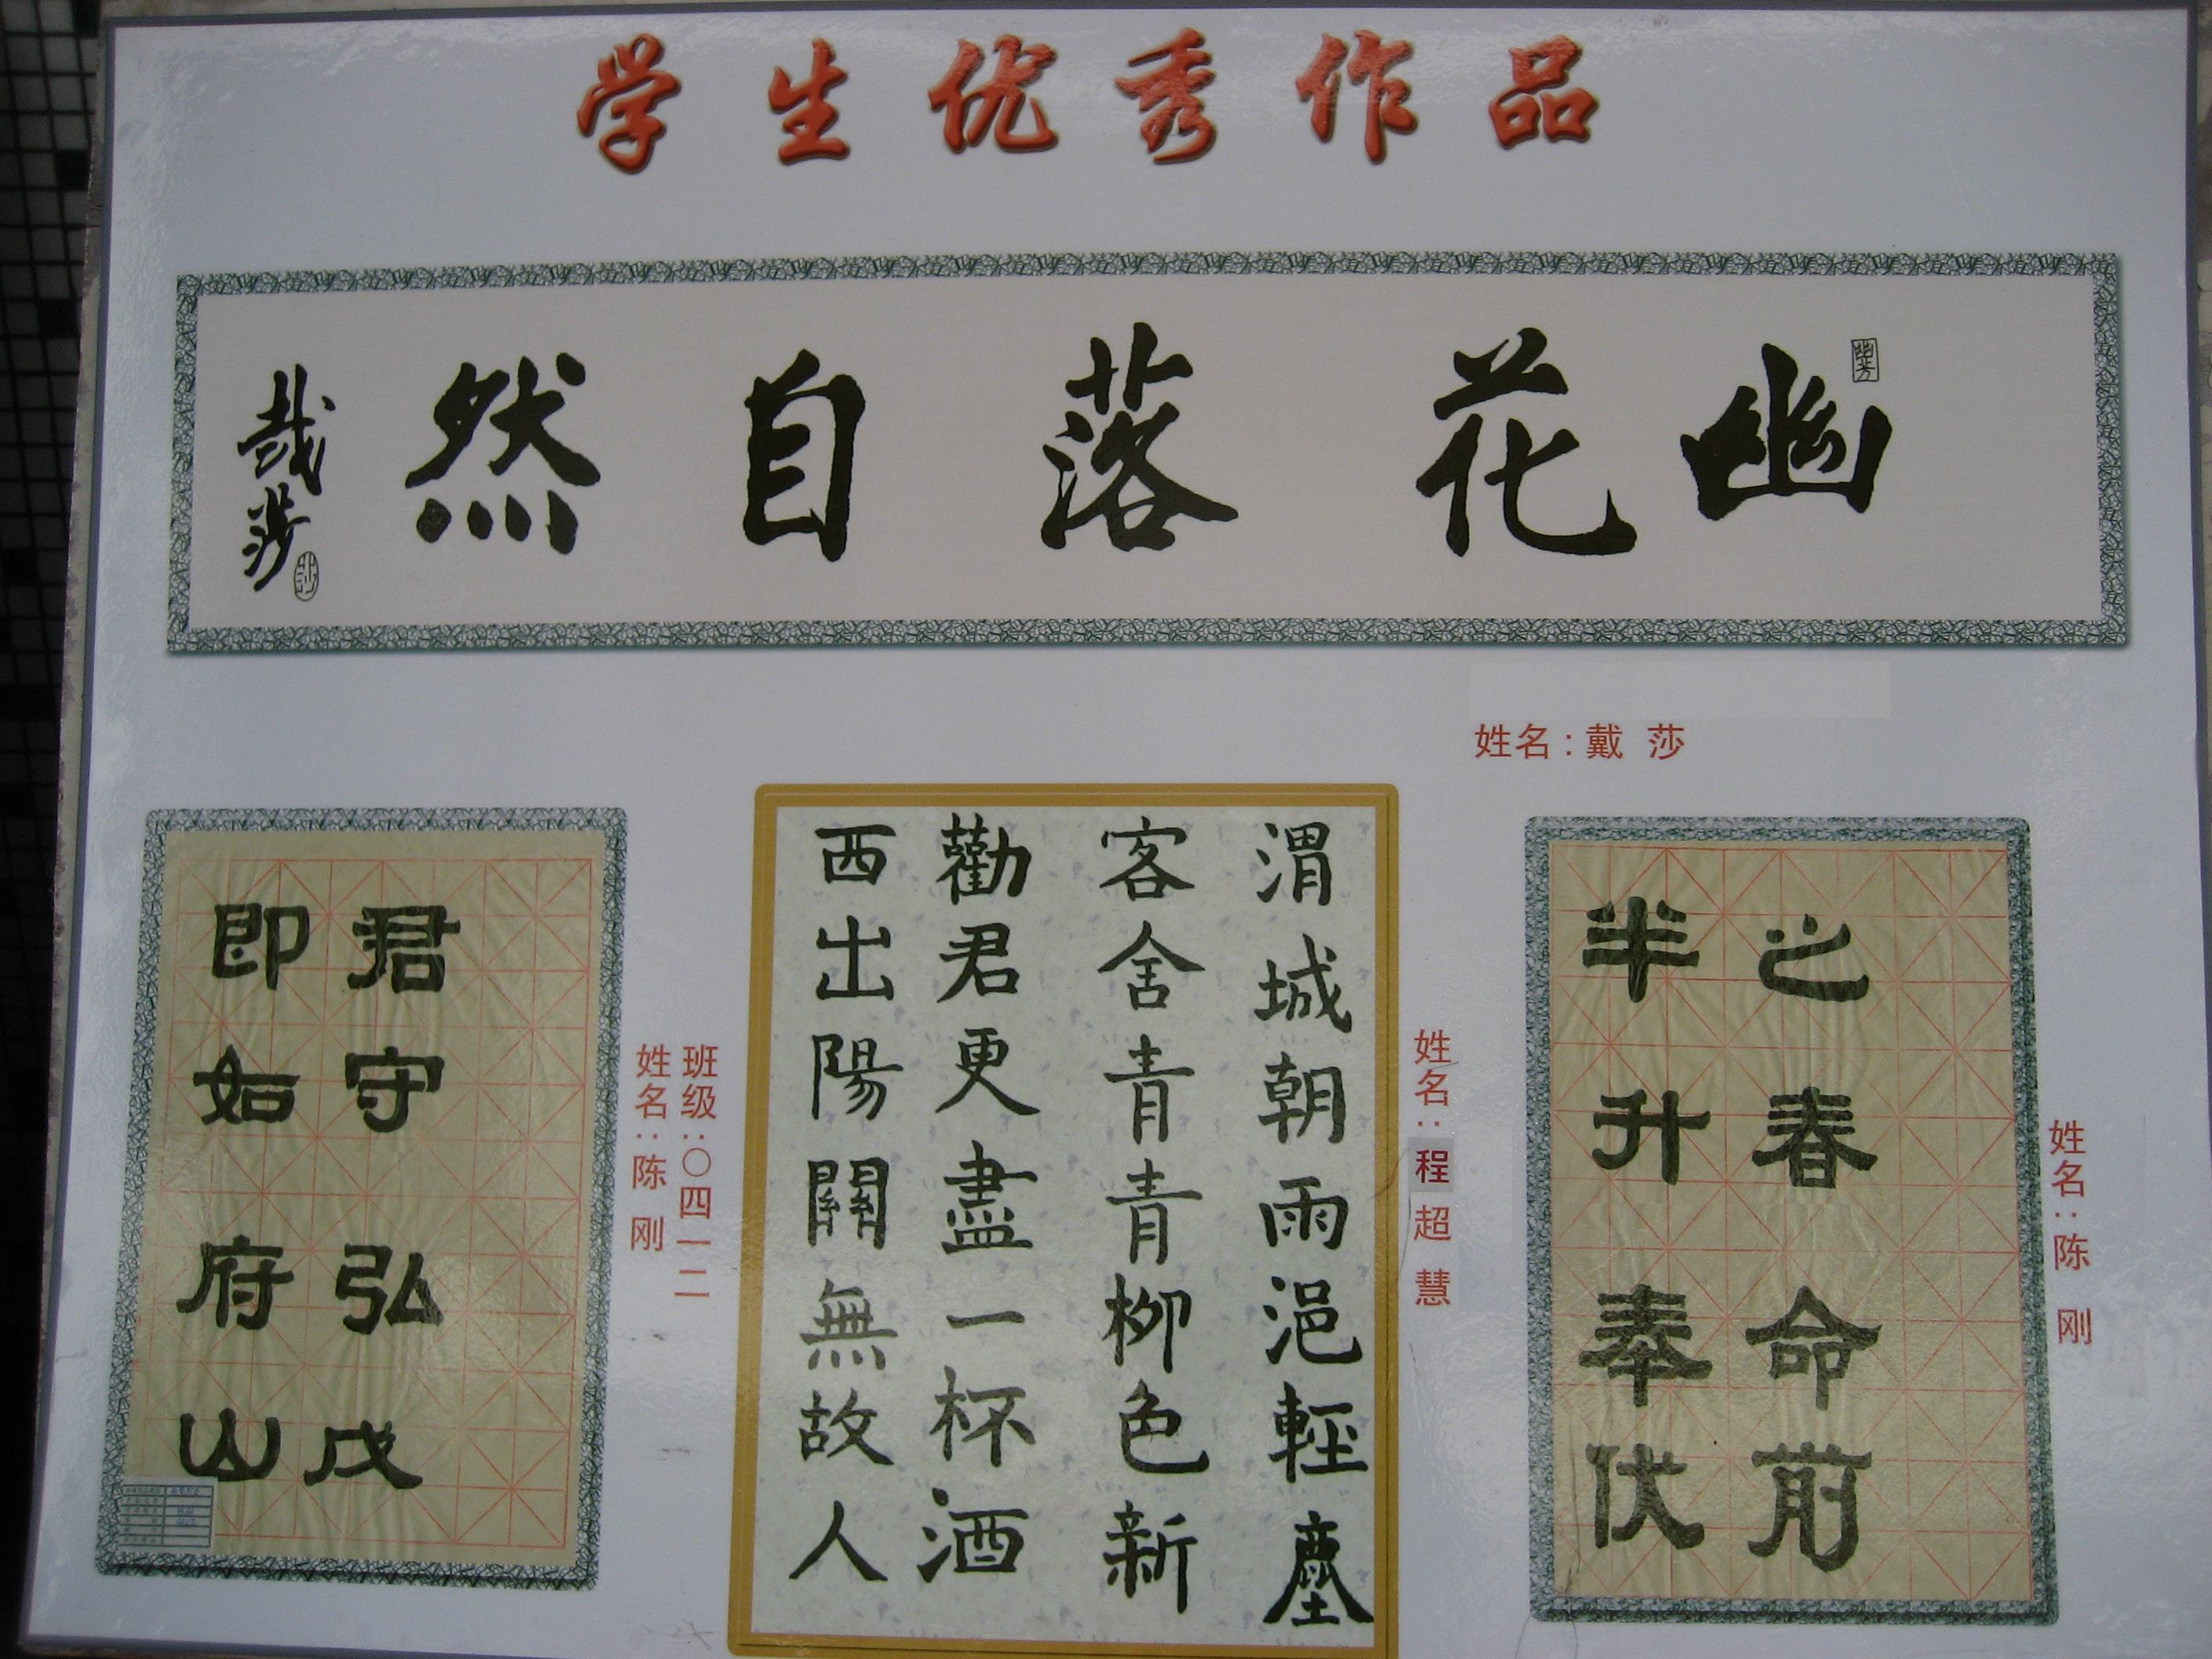 学生优秀作品
幽花落自然
戴莎
姓名:戴 莎
君守弘戊
即如府山
班级:〇四一二
姓名:陈 刚
渭城朝雨浥輕塵
客舍青青柳色新
勸君更盡一杯酒
西出陽關無故人
姓名:程超慧
之春命前
半升奉伏
姓名:陈 刚